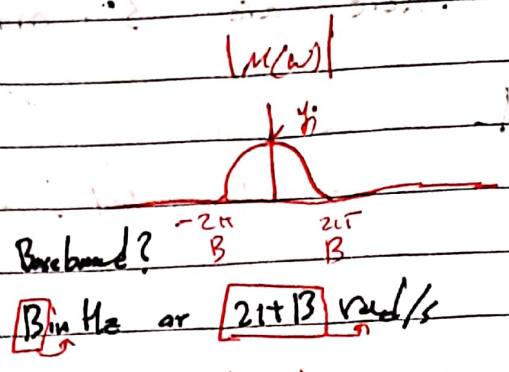 |M(ω)|
-2π 2π
B B
Baseband?
B in Hz or 2πB rad/s